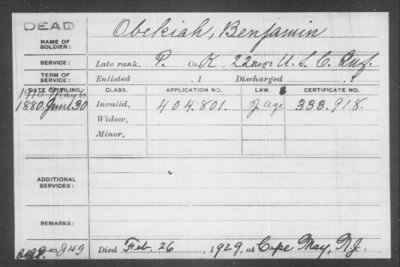 DEAD
NAME OF SOLDIER: Obekiah, Benjamin
SERVICE: Late rank, P. Co. K, 22 Reg't U.S.C. Inf.
TERM OF SERVICE: Enlisted , 1 Discharged , 1
DATE OF FILING. CLASS. APPLICATION NO. LAW. CERTIFICATE NO.
1880 June 30 Invalid, 404.801. 338.918.
Widow,
Minor,
ADDITIONAL SERVICES:
REMARKS:
Died Feb. 26, 1929, at Cape May, N.J.